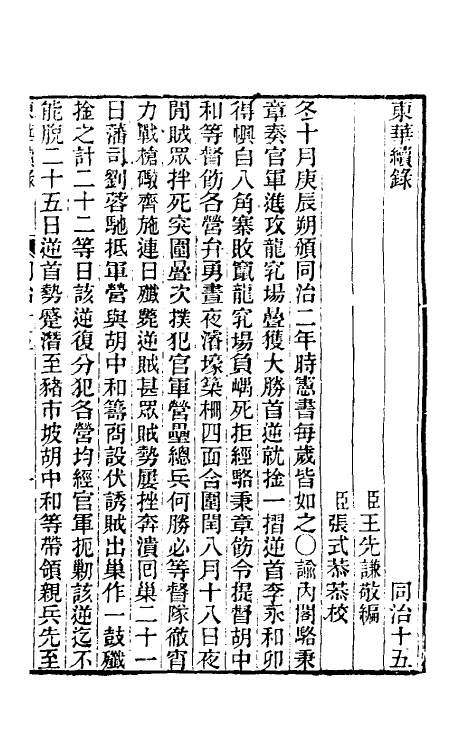 東華續錄　同治十五
臣王先謙敬編
臣張式恭恭校
冬十月庚辰朔頒同治二年時憲書每歲皆如之〇諭內閣駱秉
章奏官軍進攻龍究場疊獲大勝首逆就擒一摺逆首李永和卯
得興自八角寨敗竄龍究場負嵎死拒經駱秉章飭令提督胡中
和等督飭各營弁勇晝夜濬壕築柵四面合圍閏八月十八日夜
間賊眾拌死突圍疊次撲犯官軍營壘總兵何勝必等督隊徹宵
力戰槍礮齊施連日殲斃逆賊甚眾賊勢屢挫奔潰回巢二十一
日藩司劉蓉馳抵軍營與胡中和籌商設伏誘賊出巢作一鼓殲
捦之計二十二等日該逆復分犯各營均經官軍扼勦該逆迄不
能脫二十五日逆首勢蹙潛至豬市坡胡中和等帶領親兵先至
東華續錄　同治十五　一